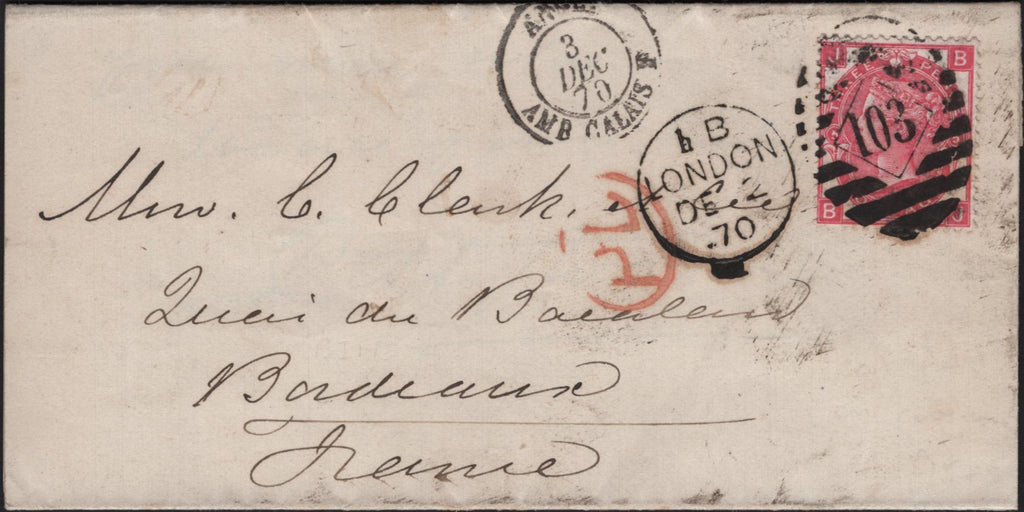 ANGL
3
DEC
70
AMB CALAIS
B
LONDON
DE 2
70
J B
THREE PE
103
B J
Mrw. C. Clerk,
Quai du Bacalan
Bordeaux
France